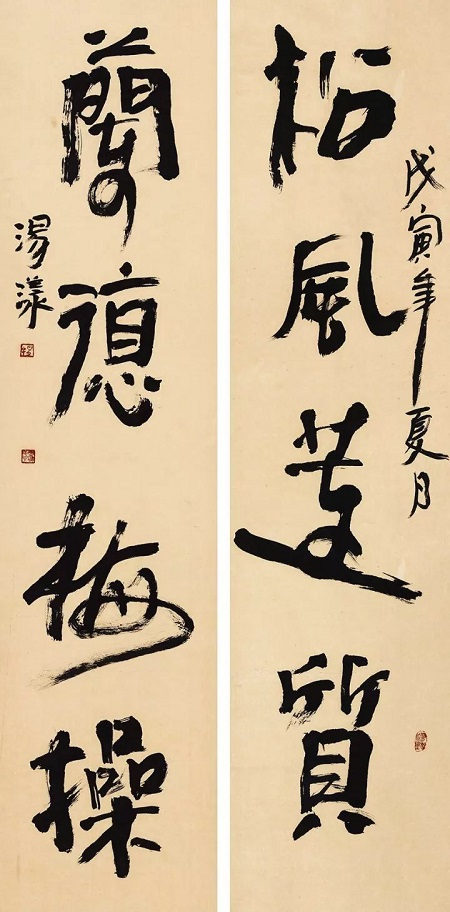 松風蓮質
戊寅年夏月
蘭德梅操
湯漾